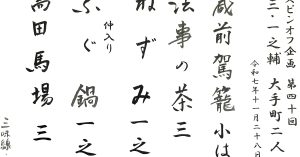 ピンオフ企画 第四十回
三・一之輔 大手町二人
令和七年十一月二十八日
蔵前駕籠 小は
法事の茶 三
ねずみ 一之
仲入り
ふぐ鍋 一之
高田馬場 三
三味線・